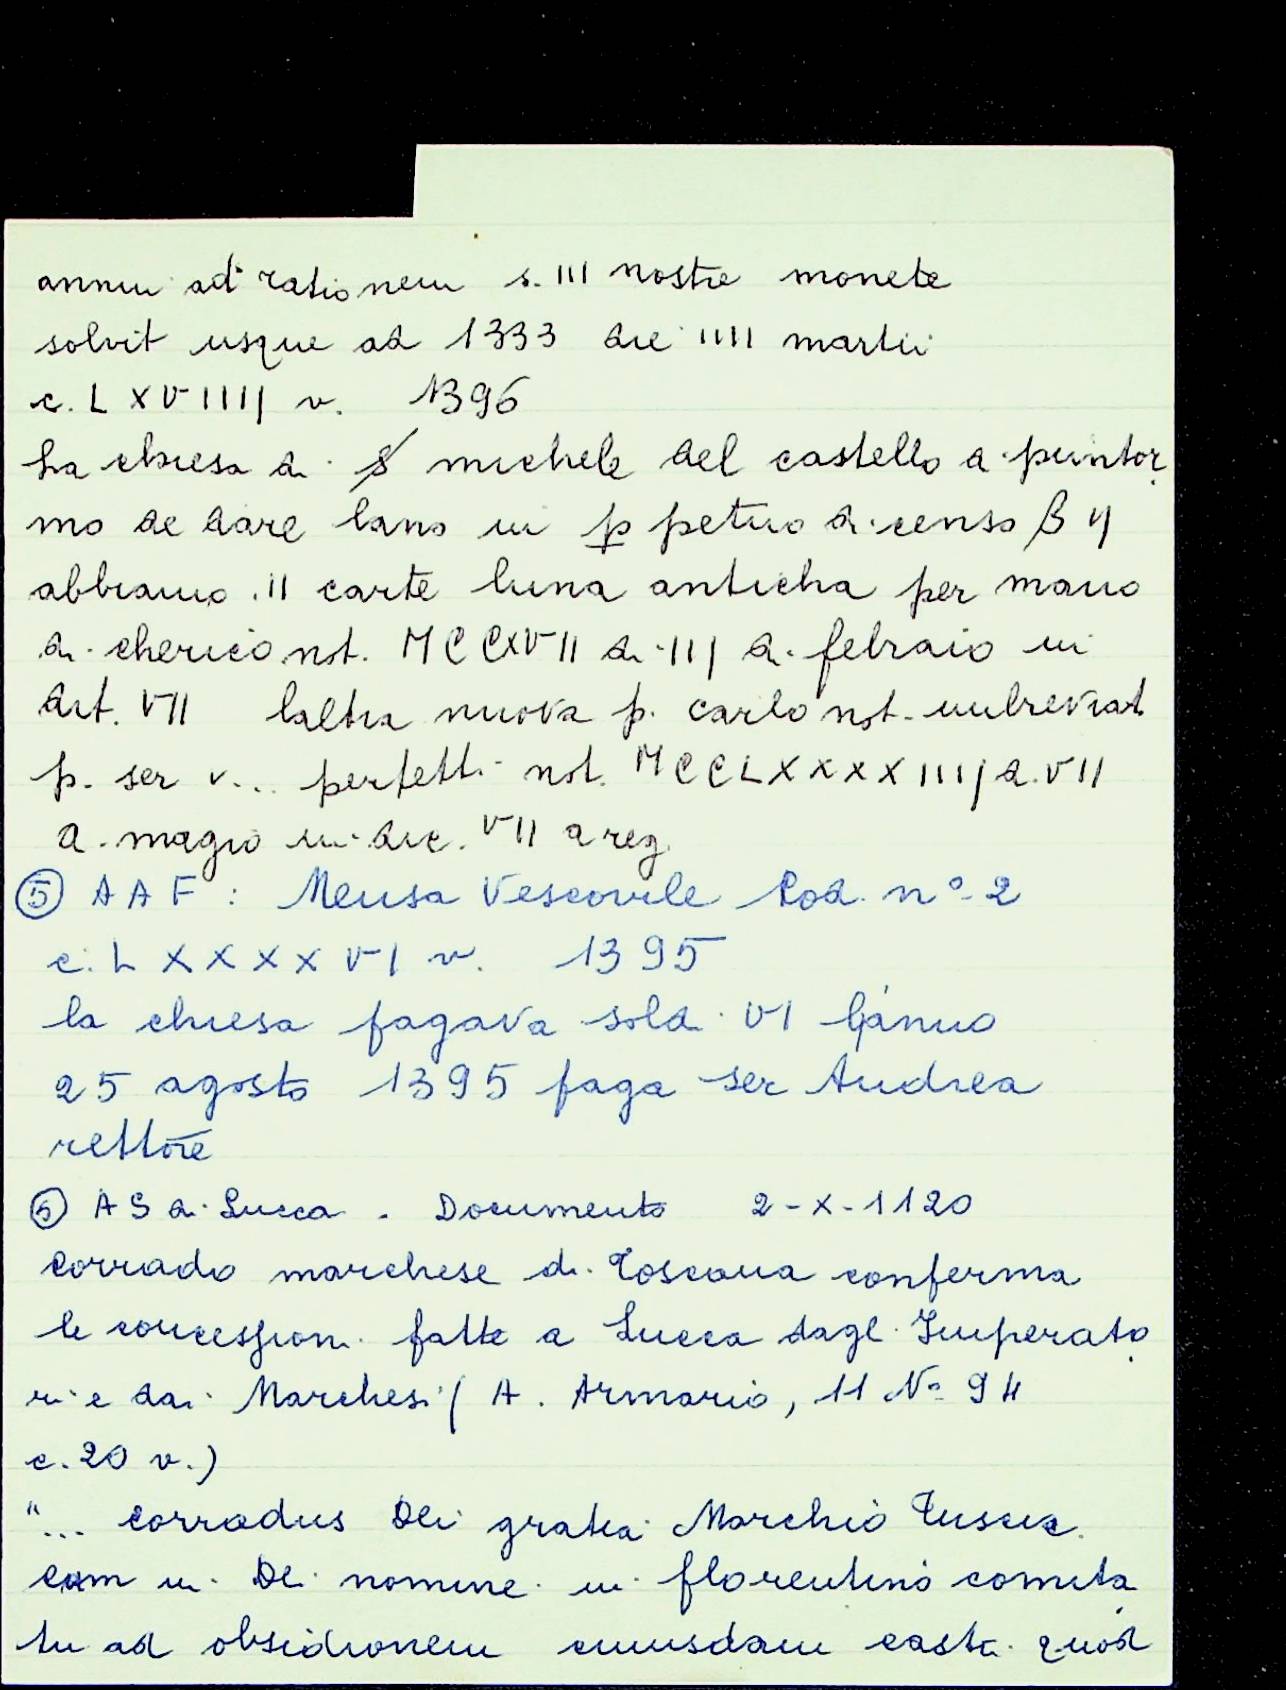 annui ad rationem s. III nostre monete
solvit usque ad 1333 die IIII martii
c. LXVIIII v. 1396
La chiesa di S michele del castello a puntor
mo de dare lano in p petuo di censo β II
abbiamo .II carte luna anticha per mano
di cherico not. MCCXVII di III di febraio in
dit. VII laltra nuova p. carlo not. imbreviat.
p. ser v... perfetti not. MCCLXXXXIIII di VII
di magio in dic. VII a reg.
⑤ AAF : Mensa Vescovile Cod. n° 2
c. LXXXXVI v. 1395
la chiesa pagava soldi VI l'anno
25 agosto 1395 paga ser Andrea
rettore
⑥ AS di Lucca . Documento 2-X-1120
Corrado marchese di Toscana conferma
le concessioni fatte a Lucca dagli Imperato
ri e dai Marchesi (A. Armario, 11 N° 94
c. 20 v.)
"... Corradus Dei gratia Marchio Tuscie
cum in Dei nomine in florentino comita
tu ad obsidionem cuiusdam castri quod